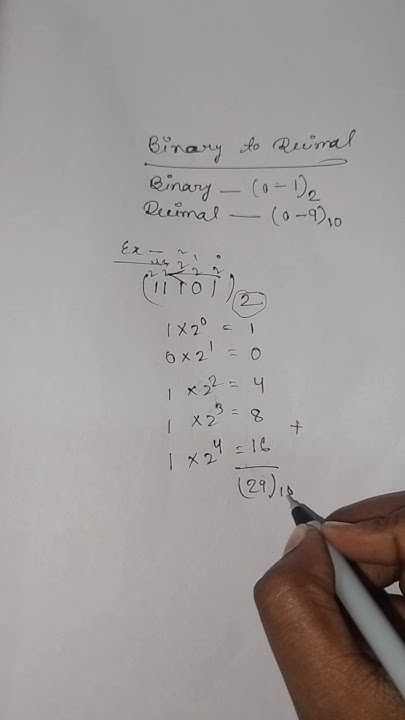 Binary to Decimal
Binary — (0-1)₂
Decimal — (0-9)₁₀
Ex —
2⁴ 2³ 2² 2¹ 2⁰
(11101)₂
1 × 2⁰ = 1
0 × 2¹ = 0
1 × 2² = 4
1 × 2³ = 8
1 × 2⁴ = 16 +
(29)₁₀